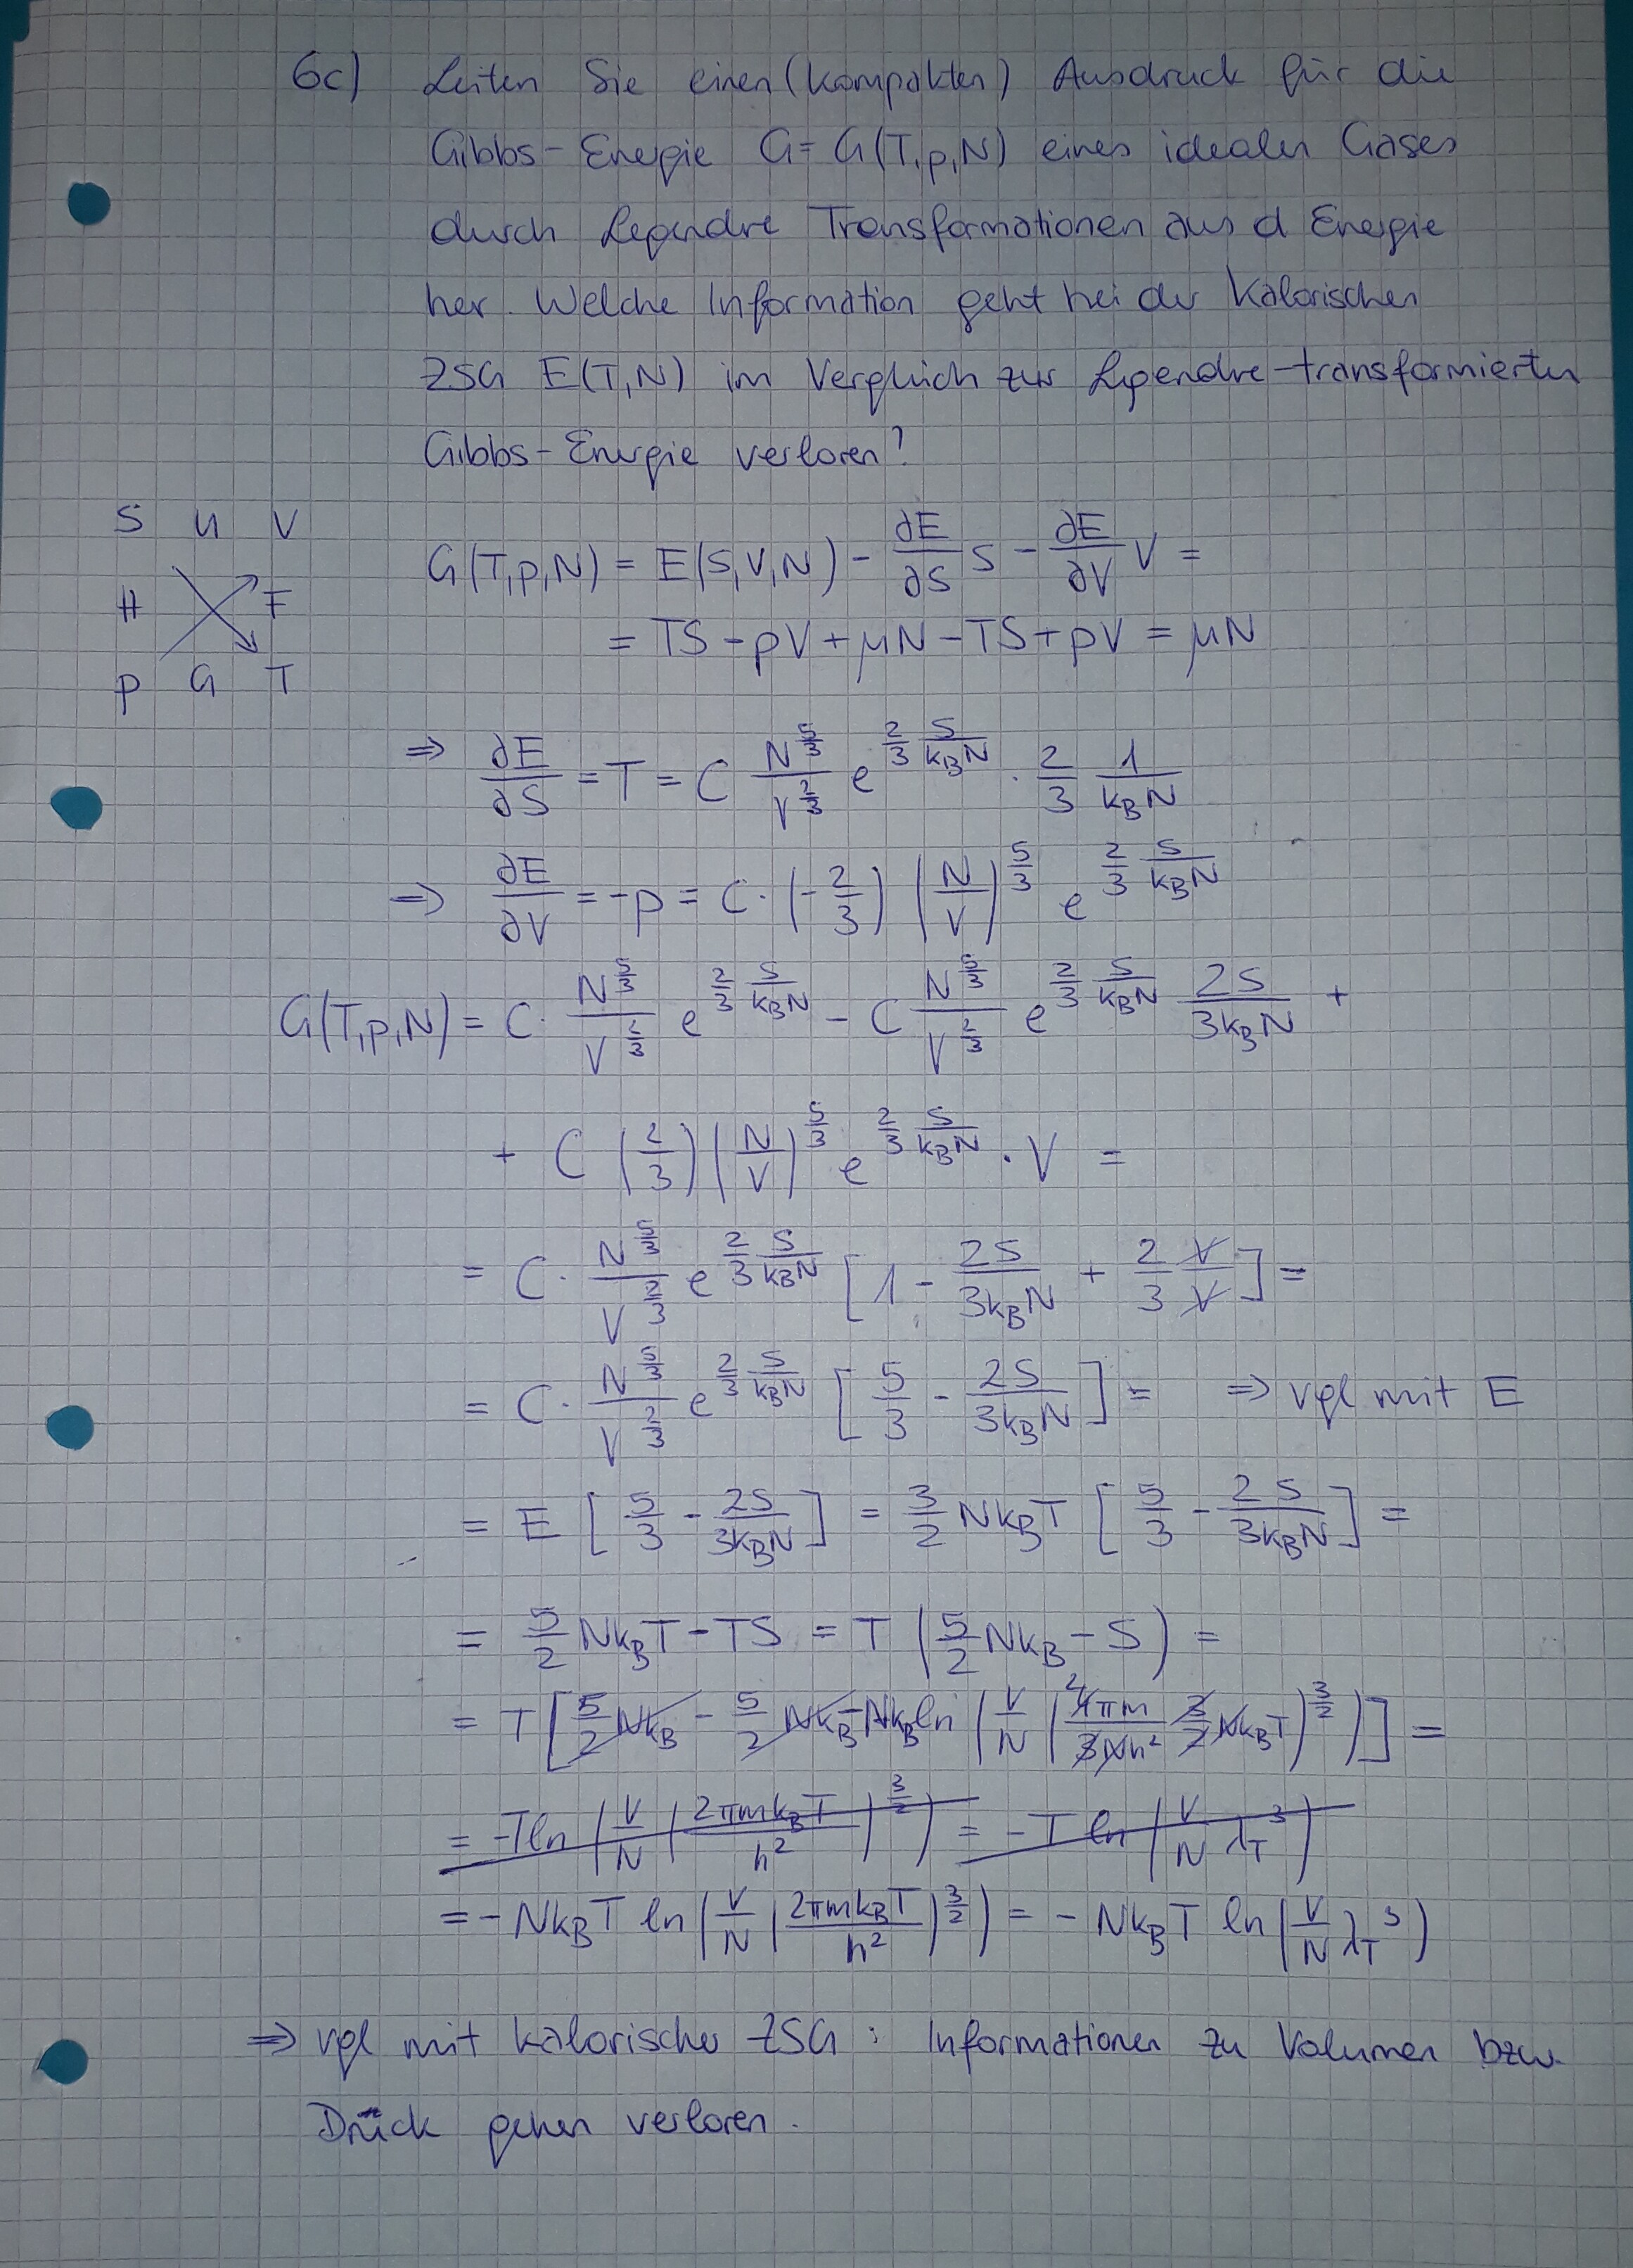 6c) Leiten Sie einen (kompakten) Ausdruck für die
Gibbs-Energie G = G(T,p,N) eines idealen Gases
durch Legendre Transformationen aus d Energie
her. Welche Information geht bei der kalorischen
ZSG E(T,N) im Vergleich zur Legendre-transformierten
Gibbs-Energie verloren?
S U V
H F
p G T
G(T,p,N) = E(S,V,N) - ∂E/∂S S - ∂E/∂V V =
= TS - pV + μN - TS + pV = μN
⇒ ∂E/∂S = T = C N^(5/3)/V^(2/3) e^(2/3 S/(k_B N)) · 2/3 1/(k_B N)
⇒ ∂E/∂V = -p = C · (-2/3) (N/V)^(5/3) e^(2/3 S/(k_B N))
G(T,p,N) = C · N^(5/3)/V^(2/3) e^(2/3 S/(k_B N)) - C N^(5/3)/V^(2/3) e^(2/3 S/(k_B N)) 2S/(3k_B N) +
+ C (2/3) (N/V)^(5/3) e^(2/3 S/(k_B N)) · V =
= C · N^(5/3)/V^(2/3) e^(2/3 S/(k_B N)) [1 - 2S/(3k_B N) + 2/3 V/V] =
= C · N^(5/3)/V^(2/3) e^(2/3 S/(k_B N)) [5/3 - 2S/(3k_B N)] = ⇒ vgl mit E
= E [5/3 - 2S/(3k_B N)] = 3/2 Nk_B T [5/3 - 2S/(3k_B N)] =
= 5/2 Nk_B T - TS = T (5/2 Nk_B - S) =
= T [5/2 Nk_B - 5/2 Nk_B - Nk_B ln (V/N (4πm/(3Nh²) 3/2 Nk_B T)^(3/2))] =
= -T ln (V/N (2πmk_B T/h²)^(3/2)) = -T ln (V/N λ_T^3)
= - Nk_B T ln (V/N (2πmk_B T/h²)^(3/2)) = - Nk_B T ln (V/N λ_T^3)
⇒ vgl mit kalorischer ZSG : Informationen zu Volumen bzw.
Druck gehen verloren.